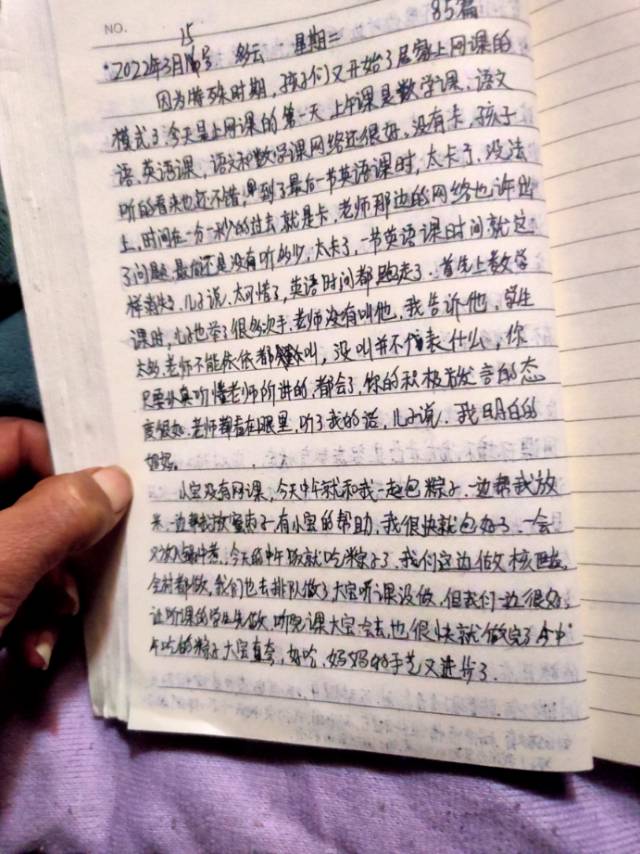 NO.
85篇
15
2022年3月16号 多云 星期二
因为特殊时期，孩子们又开始了居家上网课的
模式了，今天是上网课的第一天上午课是数学课，语文
语，英语课，语文和数学课网络还很好，没有卡，孩子
听的看来也还不错，但到了最后一节英语课时，太卡了，没法
上，时间在一分一秒的过去就是卡，老师那边的网络也许出
了问题，最后还是没有听多少，太卡了，一节英语课时间就这
样消失，儿子说，太可惜了，英语时间都跑走了。首先上数学
课时，儿子也举了很多次手，老师没有叫他，我告诉他，学生
太多，老师不能依依都叫，没叫并不代表什么，你
只要认真听懂老师所讲的，都会了，你的积极发言的态
度很好，老师都看在眼里，听了我的话，儿子说，我明白的
妈妈。
小宝没有网课，今天中午就和我一起包粽子，一边帮我放
米，一边帮我放蜜枣子，有小宝的帮助，我很快就包好了，一会
又放入锅中煮，今天的中午饭就吃粽子了，我们这边做核酸，
全村都做，我们也去排队做了大宝听课没做，但我们一边很好，
让听课的学生先做，听完课大宝去，也很快就做完了今中
午吃的粽子大宝直夸，好吃，妈妈的手艺又进步了。